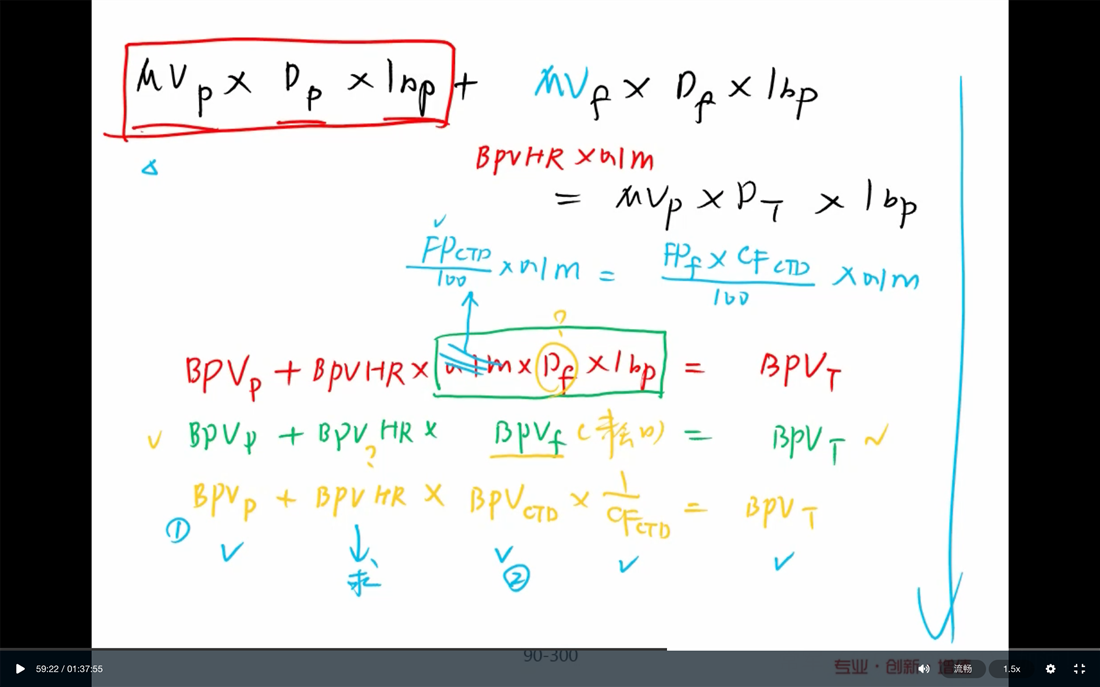 MVp × Dp × 1bp + MVf × Df × 1bp
BPVHR × 0.1m
= MVp × DT × 1bp
FPCTD/100 × 0.1m = FPf × CFCTD/100 × 0.1m
?
BPVp + BPVHR × 0.1m × Df × 1bp = BPVT
✓ BPVp + BPVHR × BPVf ( ) = BPVT ✓
?
BPVp + BPVHR × BPVCTD × 1/CFCTD = BPVT
① ✓ ↓ ✓ ✓ ✓
求 ②
90-300
专业·创新·增值
59:22 / 01:37:55 流畅 1.5x